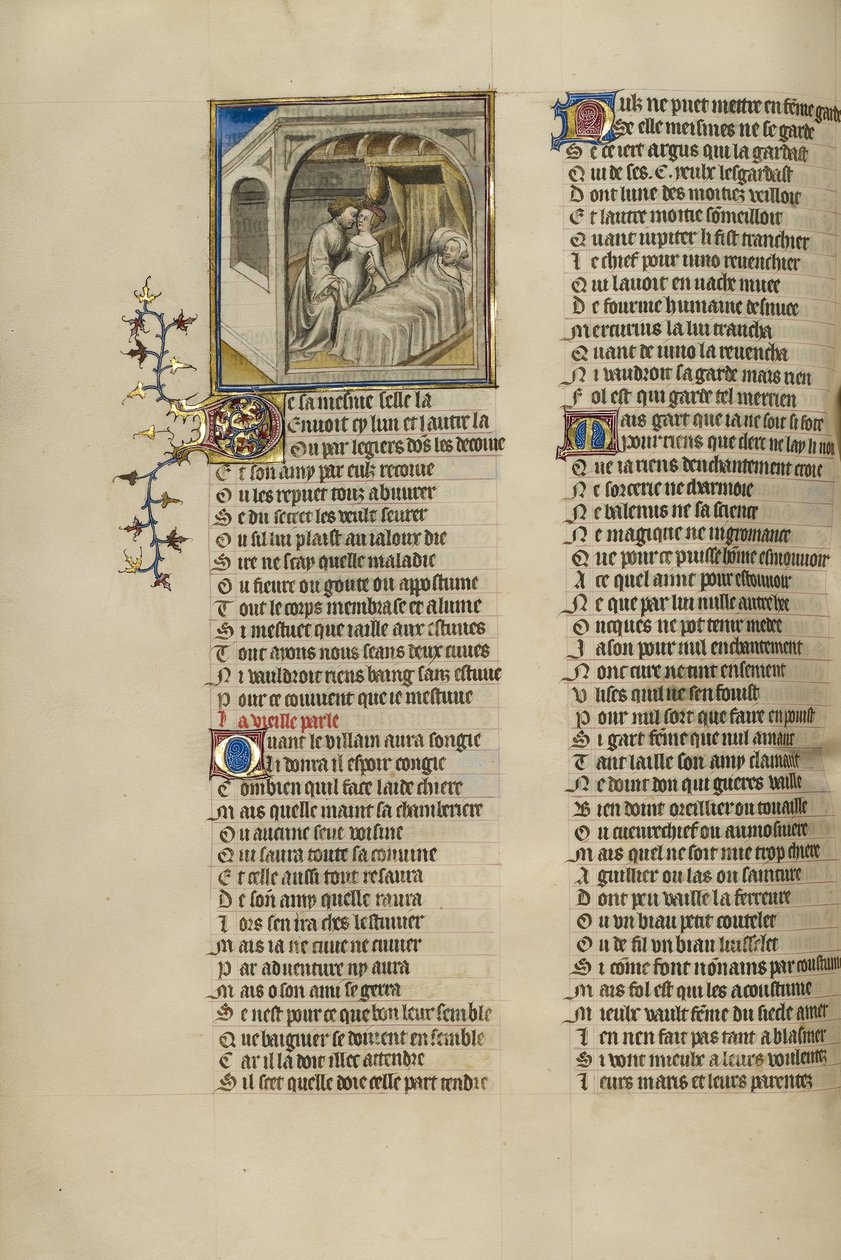 De sa mesme selle la
Envoit cy lun et lautre la
Ou par legiers dõs les decoiue
Et son amy par eulx recoiue
Ou les repuet touz abuurer
Se du secret les veult seurer
Ou sil lui plaist au ialoux die
Sire ne scay quelle maladie
Ou fieure ou goute ou appostume
Tout le corps membrase et alume
Si mestuet que iaille aux estuues
Tout ayons nous ceans deux cuues
Ni vauldroit riens baing sanz estuue
Pour ce couuent que ie mestuue
La vieille parle
Quant le villain aura songie
Li donra il espoir congie
Combien quil face laide chiere
Mais quelle maint sa chamberiere
Ou aucune seue voisine
Qui saura toute sa couuine
Et celle aussi tout resaura
De soñ amy quelle raura
Lors sen ira ches lestuuier
Mais ia ne cuue ne cuuier
Par aduenture ny aura
Mais o son ami se gerra
Se nest pour ce que bon leur semble
Que baignier se doiuent ensemble
Car il la doit illec attendre
Sil scet quelle doie celle part tendre
Nulz ne puet mettre en fẽme garde
Se elle meismes ne se garde
Se ce iert argus qui la gardast
Qui de ses .C. yeulx lesgardast
Dont lune des moitiez veilloit
Et lautre moitie sõmeilloit
Quant iupiter li fist tranchier
Le chief pour iuno reuenchier
Qui lauoit en vache muee
De fourme humaine desnuee
Mercurius la lui trancha
Quant de iuno la reuencha
Ni vaudroit sa garde mais rien
Fol est qui garde tel merrien
Mais gart que ia ne soit si sote
Pour riens que clert ne lay li note
Que ia riens denchantement croie
Ne sorcerie ne charmoie
Ne balenus ne sa science
Ne magique ne nigromance
Que pour ce puisse hõme esmouuoir
A ce quel aimt pour estouuoir
Ne que par lui nulle autre hee
Oncques ne pot tenir medee
Iason pour nul enchantement
Nonc circe ne tint ensement
Vlises quil ne sen fouist
Pour nul sort que faire en pouist
Si gart fẽme que nul amant
Tant laille son amy clamant
Ne doint don qui gueres vaille
Bien doint oreillier ou touaille
Ou cueurechief ou aumosniere
Mais quel ne soit mie trop chiere
Aguillier ou las ou sainture
Dont peu vaille la ferreure
Ou vn biau petit coutelet
Ou de fil vn biau luisselet
Si cõme font nõnains par coustume
Mais fol est qui les acoustume
Mieulx vault fẽme du siecle amer
Len nen fait pas tant a blasmer
Si vont mieulx a leurs voulentez
Leurs maris et leurs parentez